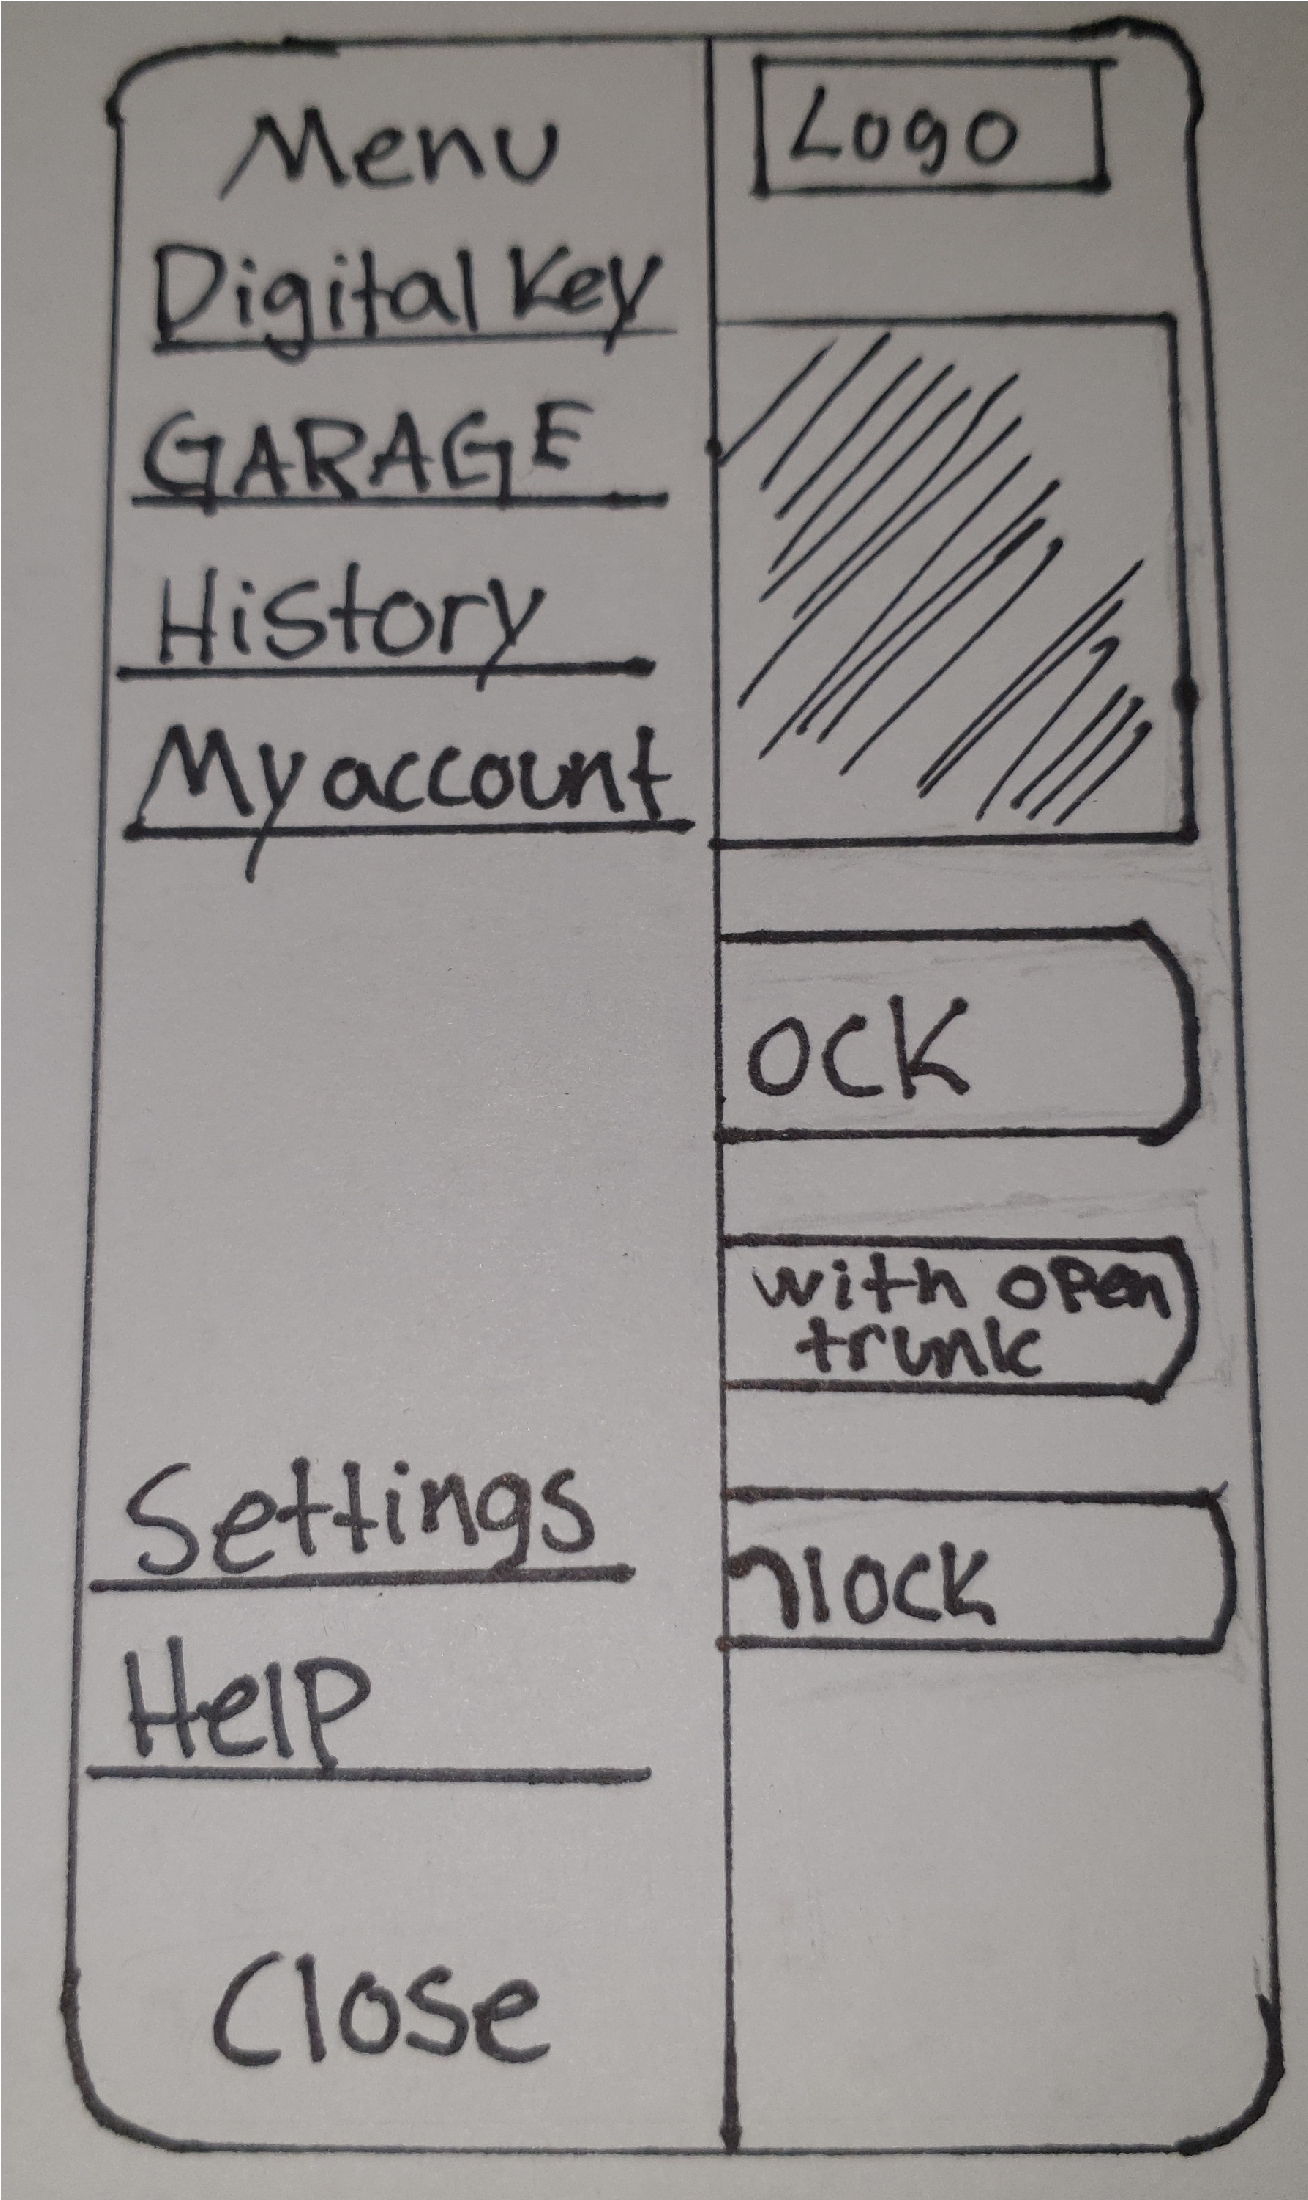 Menu
Digital Key
GARAGE
History
My account
Settings
Help
Close
Logo
ock
with open
trunk
nlock